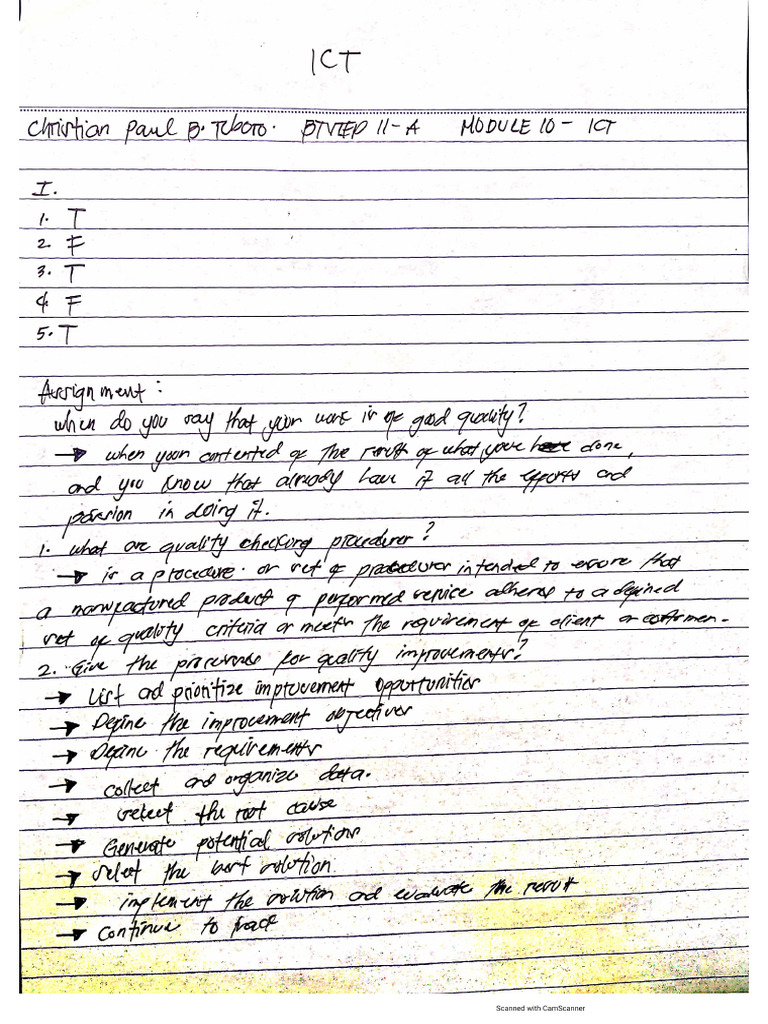 ICT
Christian Paul B. Teboro. BTVTED II-A MODULE 10 - ICT
I.
1. T
2. F
3. T
4. F
5. T
Assignment:
When do you say that your work is of good quality?
→ when your contented of the result of what your done,
and you know that already have it all the efforts and
passion in doing it.
1. what are quality checking procedures?
→ is a procedure or set of procedures intended to ensure that
a manufactured product or performed service adheres to a defined
set of quality criteria or meets the requirement of client or
2. Give the processes for quality improvements?
→ List and prioritize improvement opportunities
→ Define the improvement objectives
→ Define the requirements
→ collect and organize data.
→ select the root cause
→ Generate potential solutions
→ select the best solution
→ implement the solution and evaluate the result
→ continue to
Scanned with CamScanner